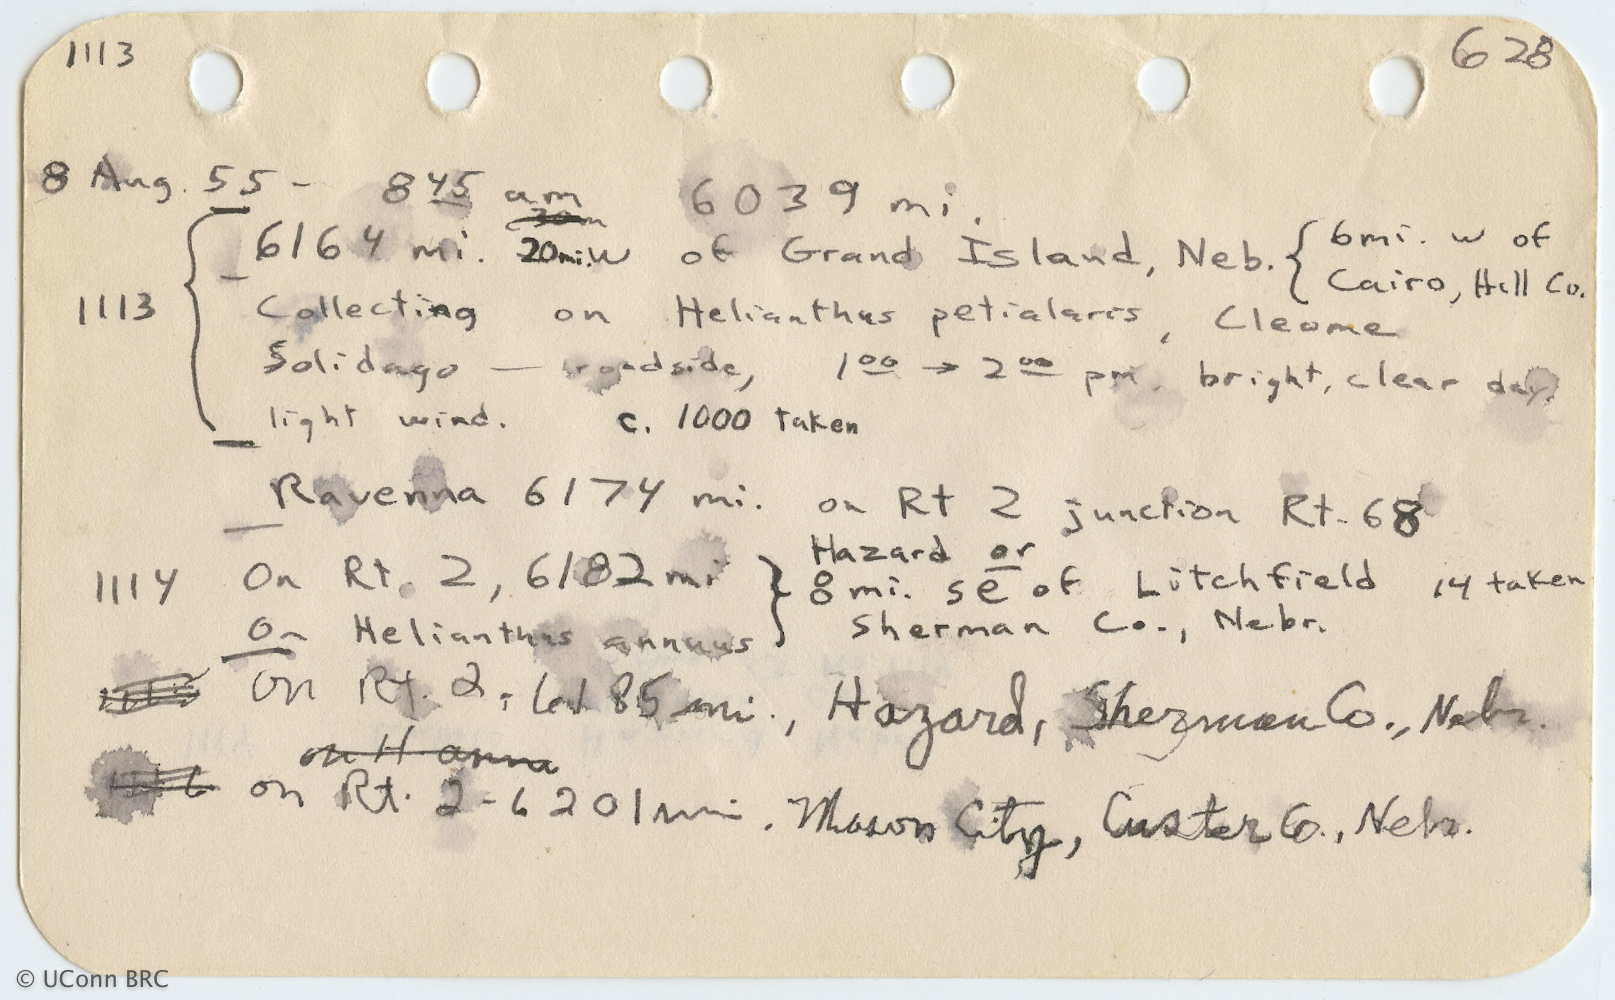 1113 628
8 Aug. 55 - 8 45 am 6039 mi.
6164 mi. 20mi.W of Grand Island, Neb. { 6mi. w of
Cairo, Hall Co.
1113 Collecting on Helianthus petialaris, Cleome
Solidago — roadside, 1 00 → 2 00 pm. bright, clear day.
light wind. c. 1000 taken
Ravenna 6174 mi. on Rt 2 junction Rt. 68
Hazard or
1114 On Rt. 2, 6182 mi } 8 mi. se of Litchfield 14 taken
On Helianthus annuus Sherman Co., Nebr.
on Rt. 2, 6185 mi., Hazard, Sherman Co., Nebr.
on H annu
on Rt. 2 - 6201 mi. Mason City, Custer Co., Nebr.
© UConn BRC